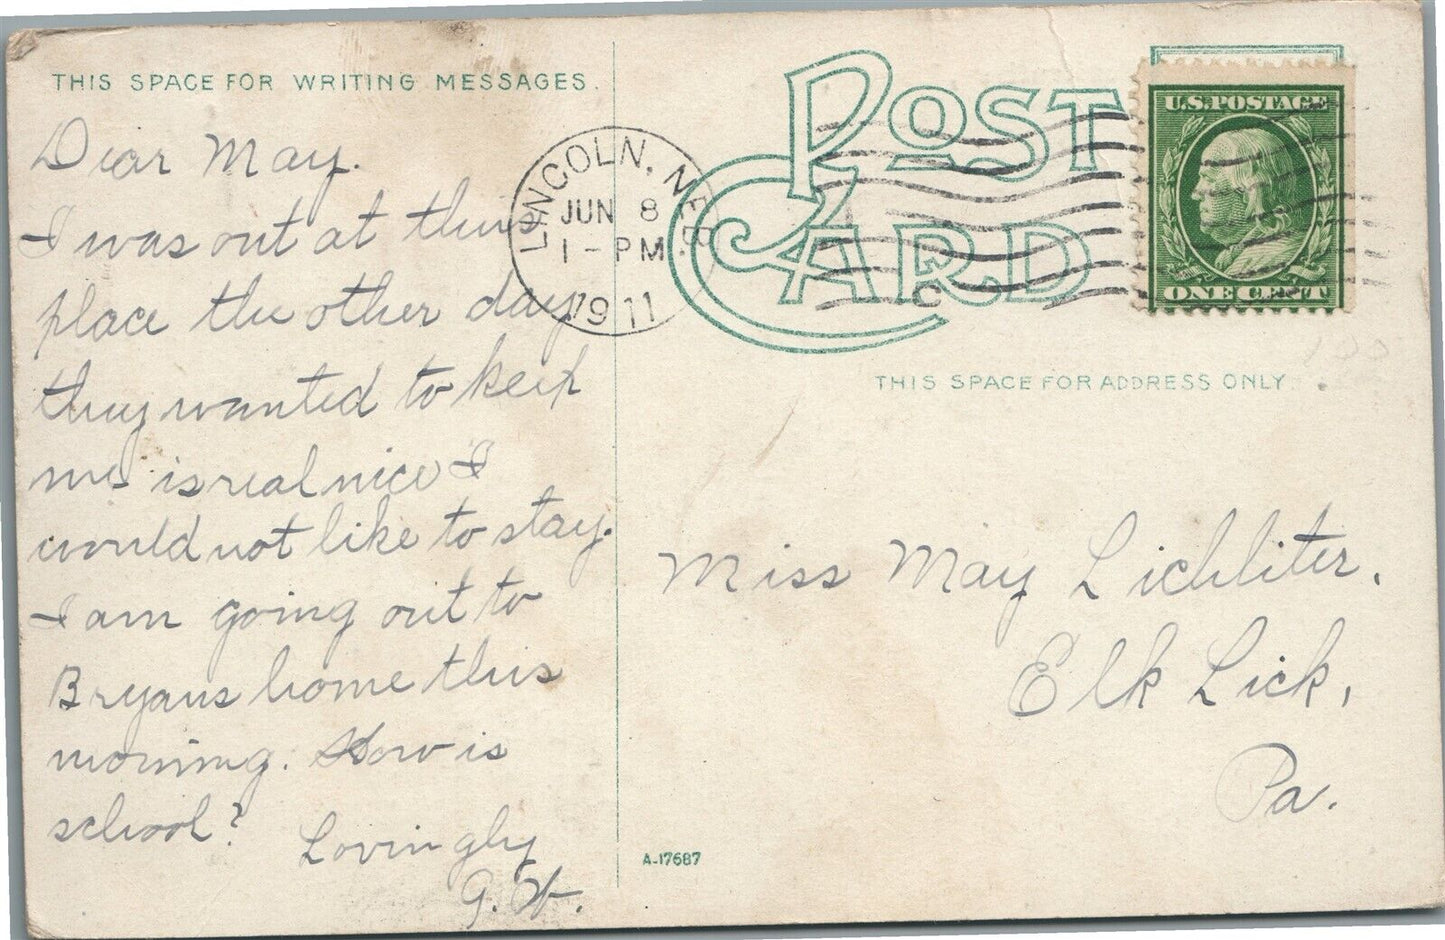 THIS SPACE FOR WRITING MESSAGES.
Dear May.
I was out at this
place the other day
they wanted to keep
me is real nice I
would not like to stay.
I am going out to
Bryans home this
morning. How is
school?
Lovingly
G. W.
LINCOLN, NEB.
JUN 8
1-PM
1911
POST
CARD
U.S. POSTAGE
ONE CENT
THIS SPACE FOR ADDRESS ONLY
100
Miss May Lichliter.
Elk Lick,
Pa.
A-17687